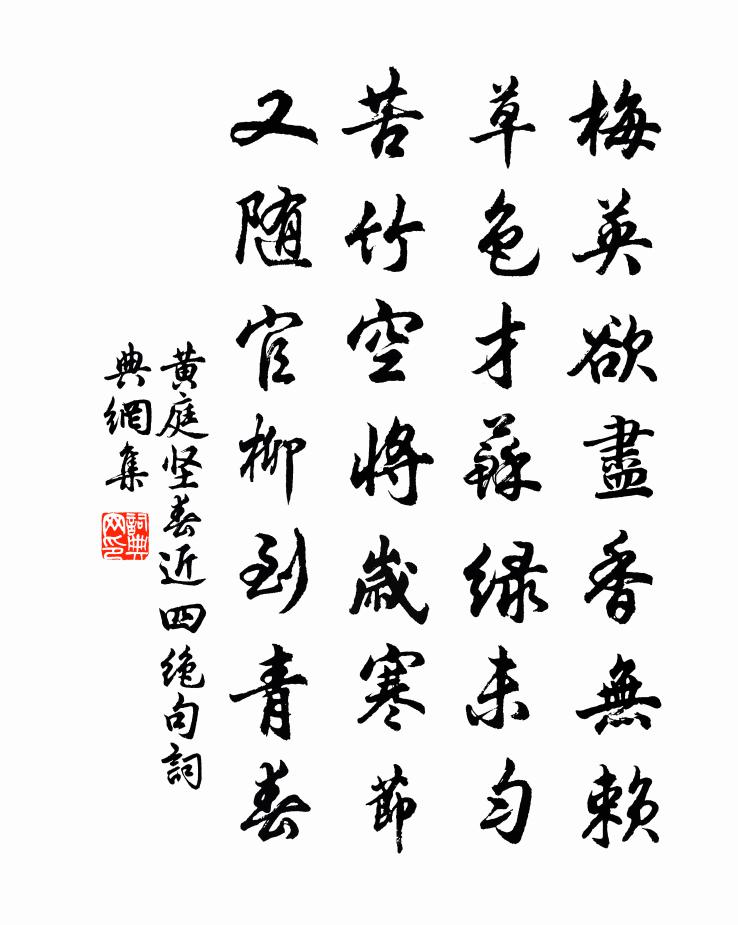 梅英欲盡香無賴
草色才蘇緑未匀
苦竹空將歲寒節
又随官柳到青春
黄庭坚春近四绝句詞
典網集
詞典网印